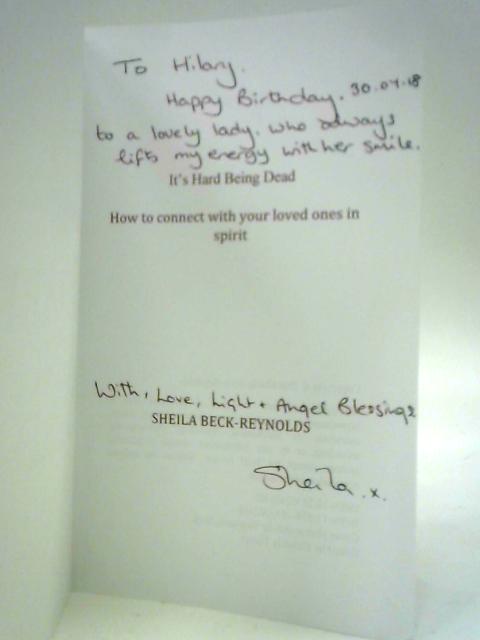 To Hilary.
Happy Birthday. 30.04.18
to a lovely lady. who always
lifts my energy with her smile.
It's Hard Being Dead
How to connect with your loved ones in
spirit
With, Love, Light + Angel Blessings
SHEILA BECK-REYNOLDS
Sheila .x.